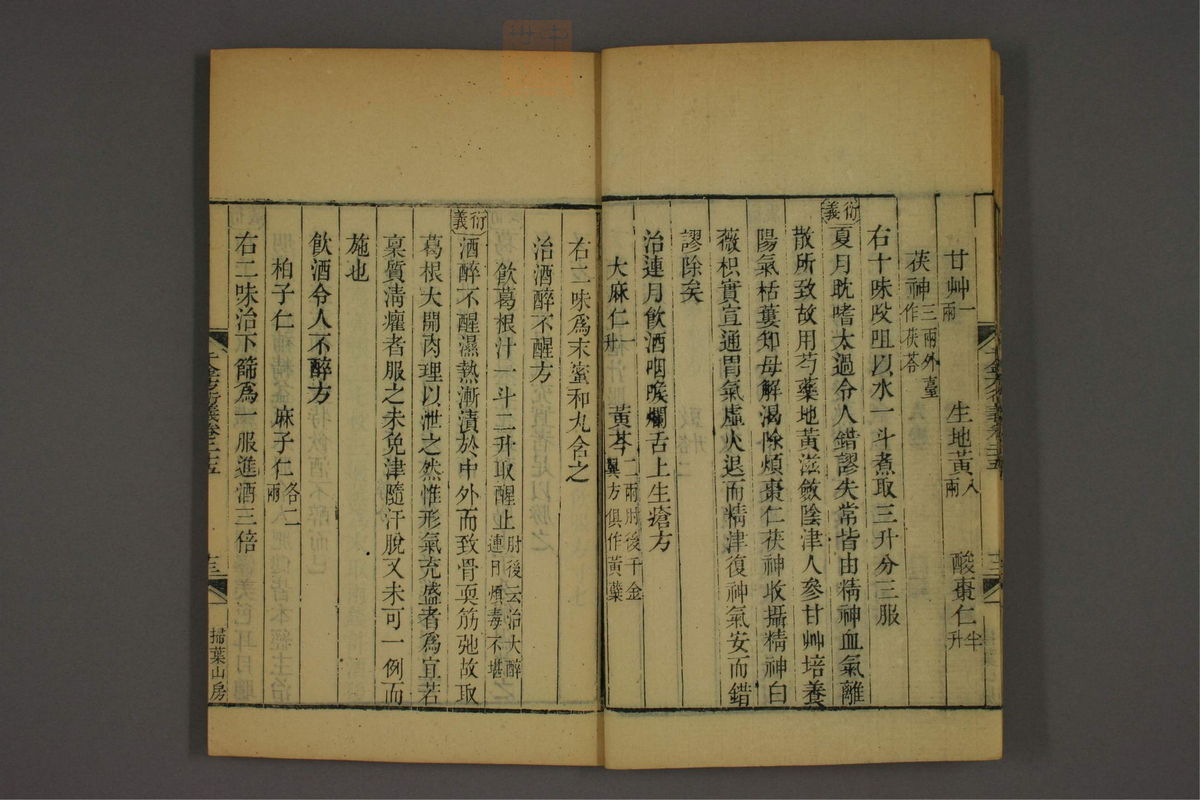 甘艸一兩 生地黃八兩 酸棗仁半升
茯神三兩外臺作茯苓
右十味㕮咀以水一斗煮取三升分三服
衍義 夏月耽嗜太過令人錯謬失常皆由精神血氣離
散所致故用芍藥地黃滋斂陰津人參甘艸培養
陽氣栝蔞知母解渴除煩棗仁茯神收攝精神白
薇枳實宣通胃氣虛火退而精津復神氣安而錯
謬除矣
治連月飲酒咽喉爛舌上生瘡方
大麻仁一升 黃芩二兩肘後千金翼方俱作黃蘗
右二味爲末蜜和丸含之
治酒醉不醒方
飲葛根汁一斗二升取醒止肘後云治大醉連日煩毒不堪
衍義 酒醉不醒濕熱漸漬於中外而致骨耎筋弛故取
葛根大開肉理以泄之然惟形氣充盛者爲宜若
稟質淸癯者服之未免津隨汗脫又未可一例而
施也
飲酒令人不醉方
柏子仁 麻子仁各二兩
右二味治下篩爲一服進酒三倍
十三
掃葉山房